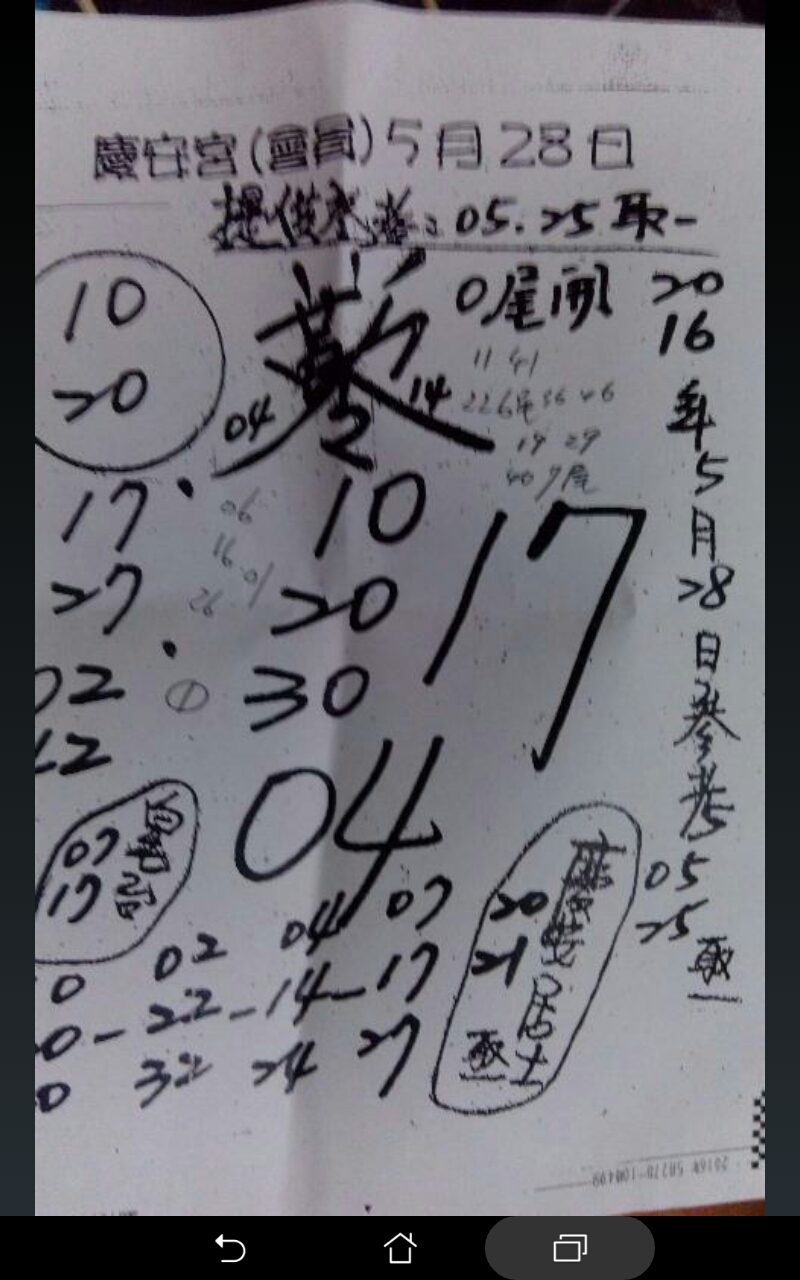 慶安宮(會員)5月28日
提供參考:05.25取一
10
20
0尾開
11 41
226尾36 46
19 29
40 7尾
04
2
14
10
20
30
17
04
17
27
06
16 01
26
02
12
自動
07
17
20
21
居士
取一
2016年5月28日參考05
25
取一
0 02 04 07
20-22-14-17
0 32 24 27